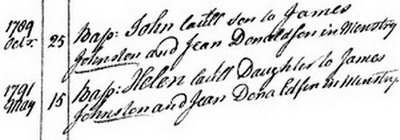 1789 Bap: John lawll son to James
Octr. 25 Johnston and Jean Donaldson in Menstry
1791 Bap: Helen lawll Daughter to James
May 15 Johnston and Jean Donaldson in Menstry